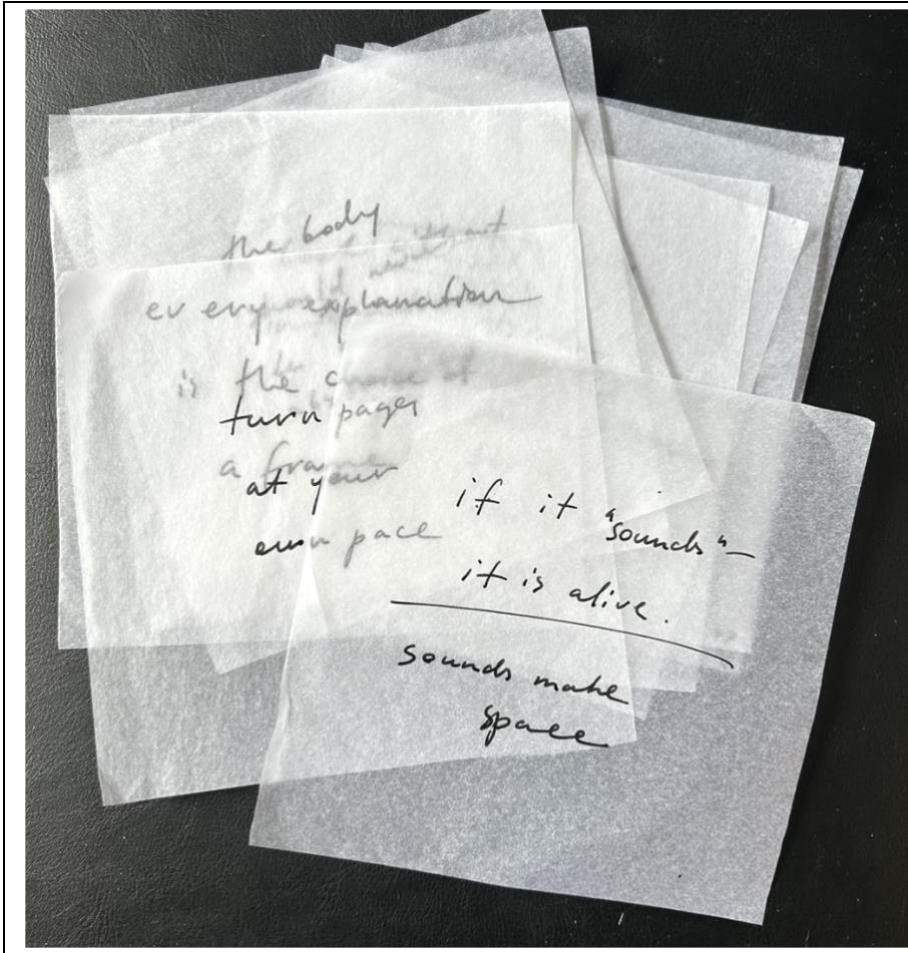 the body
every explanation
is the choice of
turn pages
a frame
at your
own pace
if it "sounds" –
it is alive.
sounds make
space